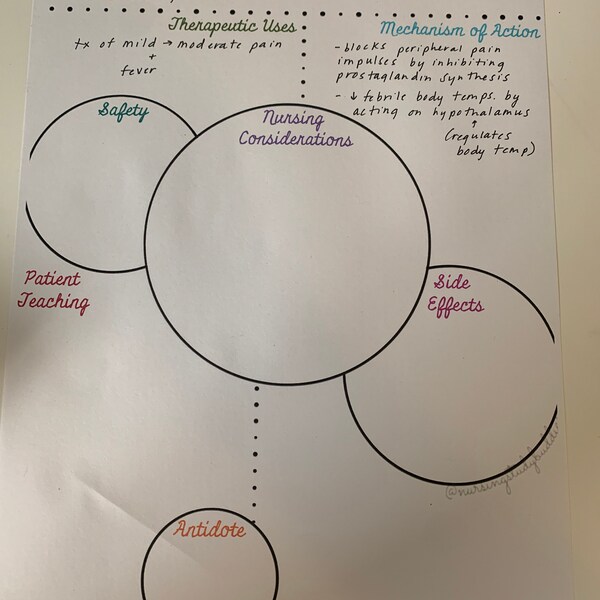 Therapeutic Uses
tx of mild → moderate pain
+
fever
Mechanism of Action
- blocks peripheral pain
impulses by inhibiting
prostaglandin synthesis
- ↓ febrile body temps. by
acting on hypothalamus
↑
(regulates
body temp)
Safety
Nursing
Considerations
Patient
Teaching
Side
Effects
@nursingstudybuddies
Antidote